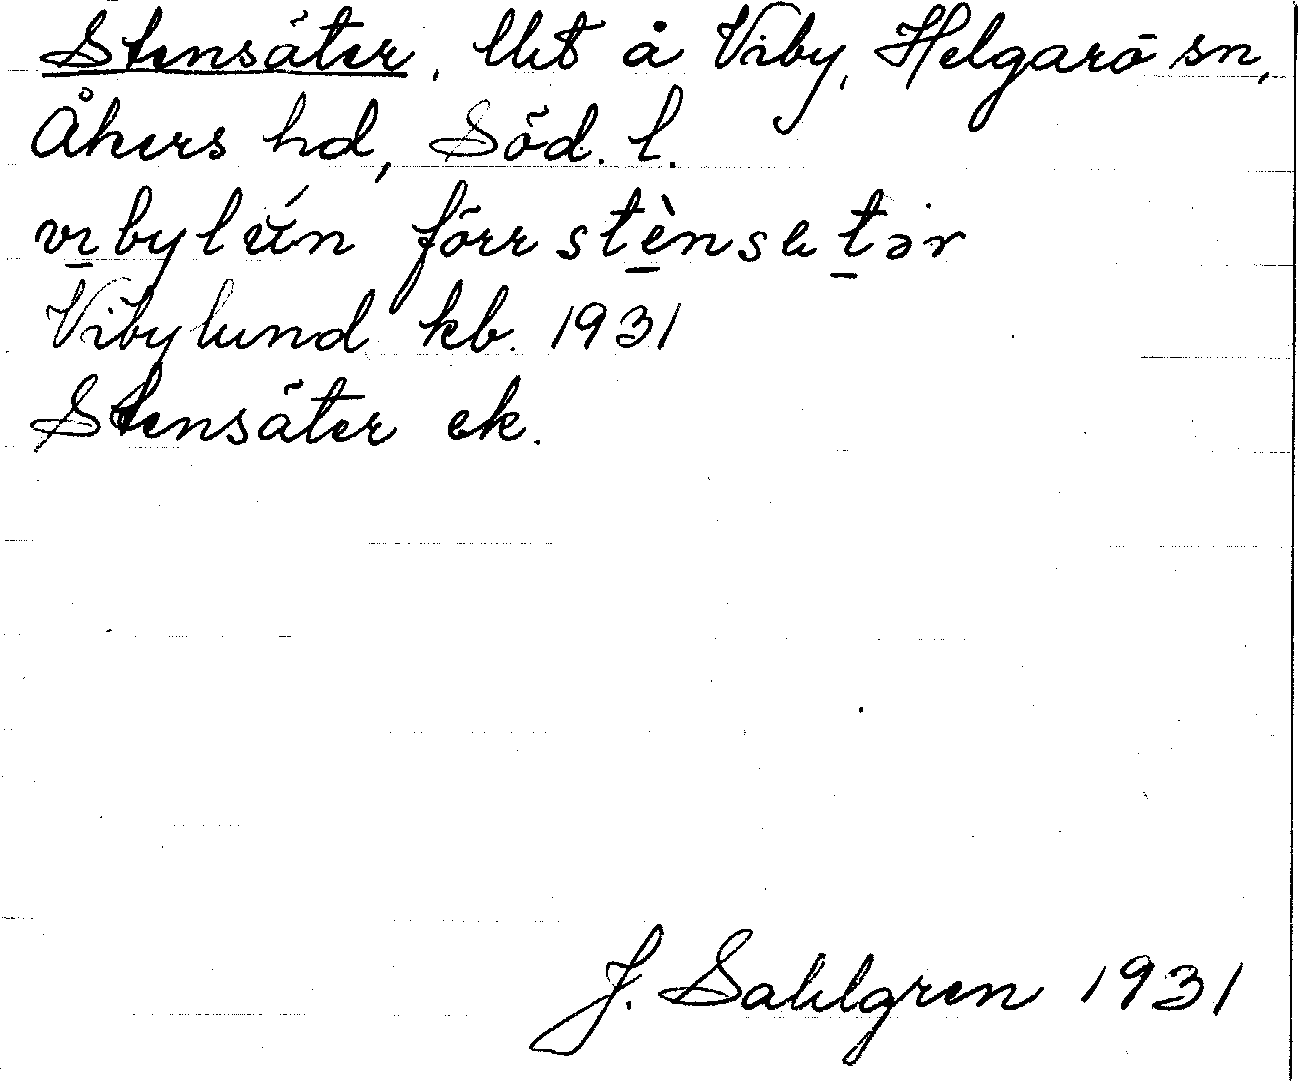 Stensäter, lht å Viby, Helgarö sn,
Åkers hd, Söd. l.
vi̲bylún förr stè̲nset̲ər
Vibylund kb. 1931
Stensäter ek.
J. Sahlgren 1931